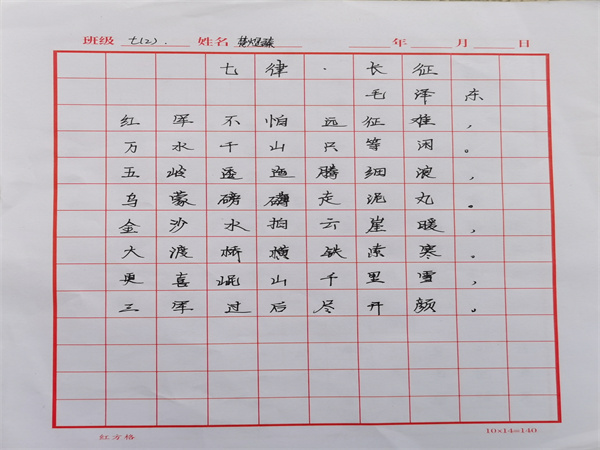 班级 七(2). 姓名 年 月 日
七律·长征
毛泽东
红军不怕远征难,
万水千山只等闲。
五岭逶迤腾细浪,
乌蒙磅礴走泥丸。
金沙水拍云崖暖,
大渡桥横铁索寒。
更喜岷山千里雪,
三军过后尽开颜。
红方格 10×14=140